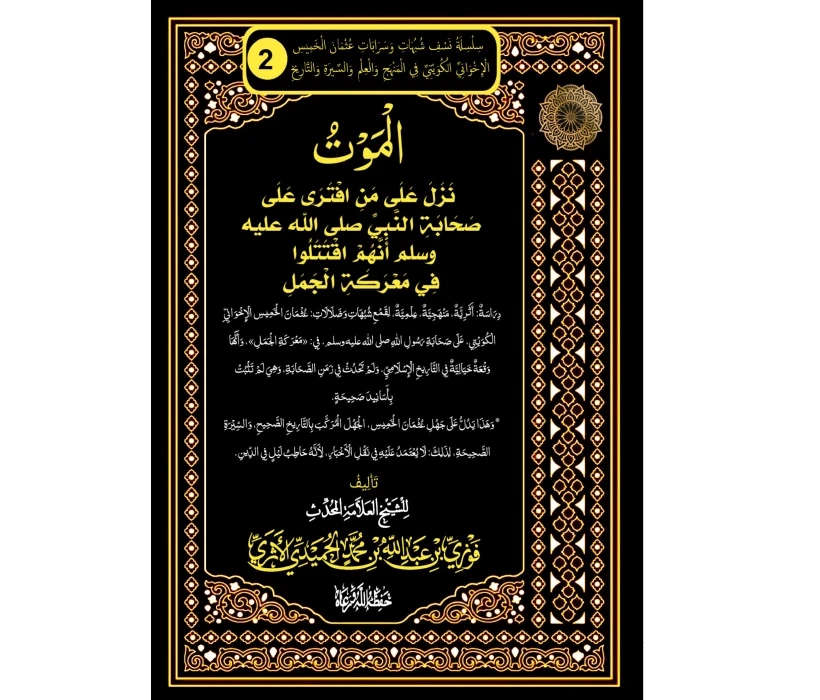 سِلْسِلَةُ نَسْفِ شُبُهَاتِ وَسَرَابَاتِ عُثْمَانَ الْخَمِيسِ
الْإِخْوَانِيِّ الْكُوَيْتِيِّ فِي الْمَنْهَجِ وَالْعِلْمِ وَالسِّيرَةِ وَالتَّارِيخِ
2
الْمَوْتُ
نَزَلَ عَلَى مَنِ افْتَرَى عَلَى
صَحَابَةِ النَّبِيِّ صلى الله عليه
وسلم أَنَّهُمْ اقْتَتَلُوا
فِي مَعْرَكَةِ الْجَمَلِ
دِرَاسَةٌ: أَثَرِيَّةٌ، مَنْهَجِيَّةٌ، عِلْمِيَّةٌ، لِقَمْعِ شُبُهَاتِ وَضَلَالَاتِ: عُثْمَانَ الْخَمِيسِ الْإِخْوَانِيِّ
الْكُوَيْتِيِّ، عَلَى صَحَابَةِ رَسُولِ اللهِ صلى الله عليه وسلم، فِي: «مَعْرَكَةِ الْجَمَلِ»، وَأَنَّهَا
وَقْعَةٌ خَيَالِيَّةٌ فِي التَّارِيخِ الْإِسْلَامِيِّ، وَلَمْ تَحْدُثْ فِي زَمَنِ الصَّحَابَةِ، وَهِيَ لَمْ تَثْبُتْ
بِأَسَانِيدَ صَحِيحَةٍ.
* وَهَذَا يَدُلُّ عَلَى جَهْلِ عُثْمَانَ الْخَمِيسِ، الْجَهْلَ الْمُرَكَّبَ بِالتَّارِيخِ الصَّحِيحِ، وَالسِّيْرَةِ
الصَّحِيحَةِ، لِذَلِكَ: لَا يُعْتَمَدُ عَلَيْهِ فِي نَقْلِ الْأَخْبَارِ، لِأَنَّهُ حَاطِبُ لَيْلٍ فِي الدِّينِ.
تَأْلِيفُ
لِلشَّيْخِ الْعَلَّامَةِ الْمُحَدِّثِ
فَوْزِيِّ بْنِ عَبْدِ اللَّهِ بْنِ مُحَمَّدٍ الْحُمَيْدِيِّ الْأَثَرِيِّ
حَفِظَهُ اللَّهُ وَرَعَاهُ